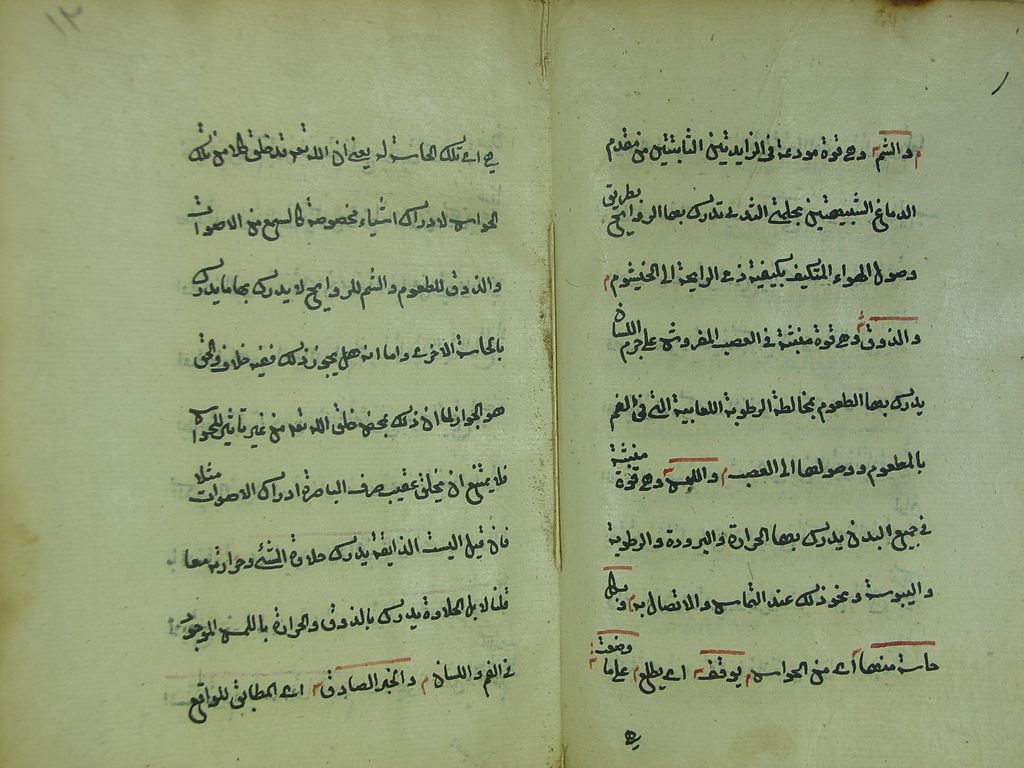 والشم وهي قوة مودعة في الزايدتين الثابتتين من مقدم
الدماغ الشبيهتين بحلمتي الثدي تدرك بها الروايح بطريق
وصول الهواء المتكيف بكيفية ذي الرايحة الى الخيشوم
والذوق وهي قوة منبثة في العصب المفروش على جرم اللسان
يدرك بها الطعوم بمخالطة الرطوبة اللعابية التي في الفم
بالمطعوم ووصولها الى العصب واللمس وهي قوة منبثة
في جميع البدن يدرك بها الحرارة والبرودة والرطوبة
واليبوسة ونحو ذلك عند التماس والاتصال به وبكل
حاسة منها اي من الحواس يوقف اي يطلع على ما وضعت
هي
١٢
هي اي تلك الحاسة له يعني ان الله تعه قد خلق كلا من تلك
الحواس لادراك اشياء مخصوصة كالسمع من الاصوات
والذوق للطعوم والشم للروايح لا يدرك بها ما يدرك
بالحاسة الاخرى واما انه هل يجوز ذلك ففيه خلاف والحق
هو الجواز لما ان ذلك بمحض خلق الله تعه من غير تاثير للحواس
فلا يمتنع ان يخلق عقيب صرف الباصرة ادراك الاصوات مثلا
فان قيل اليست الذايقة يدرك حلاوة الشئ وحرارته معا
قلنا لا بل الحلاوة يدرك بالذوق والحرارة باللمس الموجود
في الفم واللسان والخبر الصادق اي المطابق للواقع